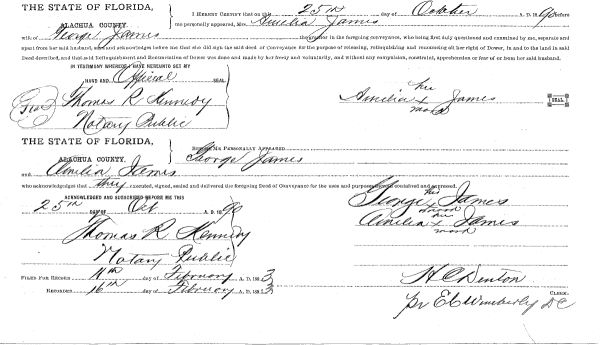 THE STATE OF FLORIDA,
ALACHUA COUNTY.
I HEREBY CERTIFY that on this 25th day of October A. D. 1890 before
me personally appeared, Mrs. Amelia James
wife of George James the grantor in the foregoing conveyance, who being first duly questioned and examined by me, separate and
apart from her said husband, did and acknowledged before me that she did sign the said deed of Conveyance for the purpose of releasing, relinquishing and renouncing all her right of Dower, in and to the land in said
Deed described, and that said Relinquishment and Renunciation of Dower was done and made by her freely and voluntarily, and without any compulsion, constraint, apprehension or fear of or from her said husband.
IN TESTIMONY WHEREOF, I HAVE HEREUNTO SET MY
HAND AND Official SEAL
Thomas R Kennedy
Notary Public
(Seal)
her
Amelia x James
mark
SEAL
THE STATE OF FLORIDA.
ALACHUA COUNTY.
BEFORE ME PERSONALLY APPEARED
George James
and Amelia James
who acknowledged that they executed, signed, sealed and delivered the foregoing Deed of Conveyance for the uses and purposes therein contained and expressed.
ACKNOWLEDGED AND SUBSCRIBED BEFORE ME THIS
25th DAY OF Oct A. D. 1890
Thomas R Kennedy
Notary Public
his
George x James
mark
her
Amelia x James
mark
FILED FOR RECORD 11th day of February A. D. 1893
RECORDED 16th day of February A. D. 1893
H C Denton
CLERK.
pr E C Wimberly DC